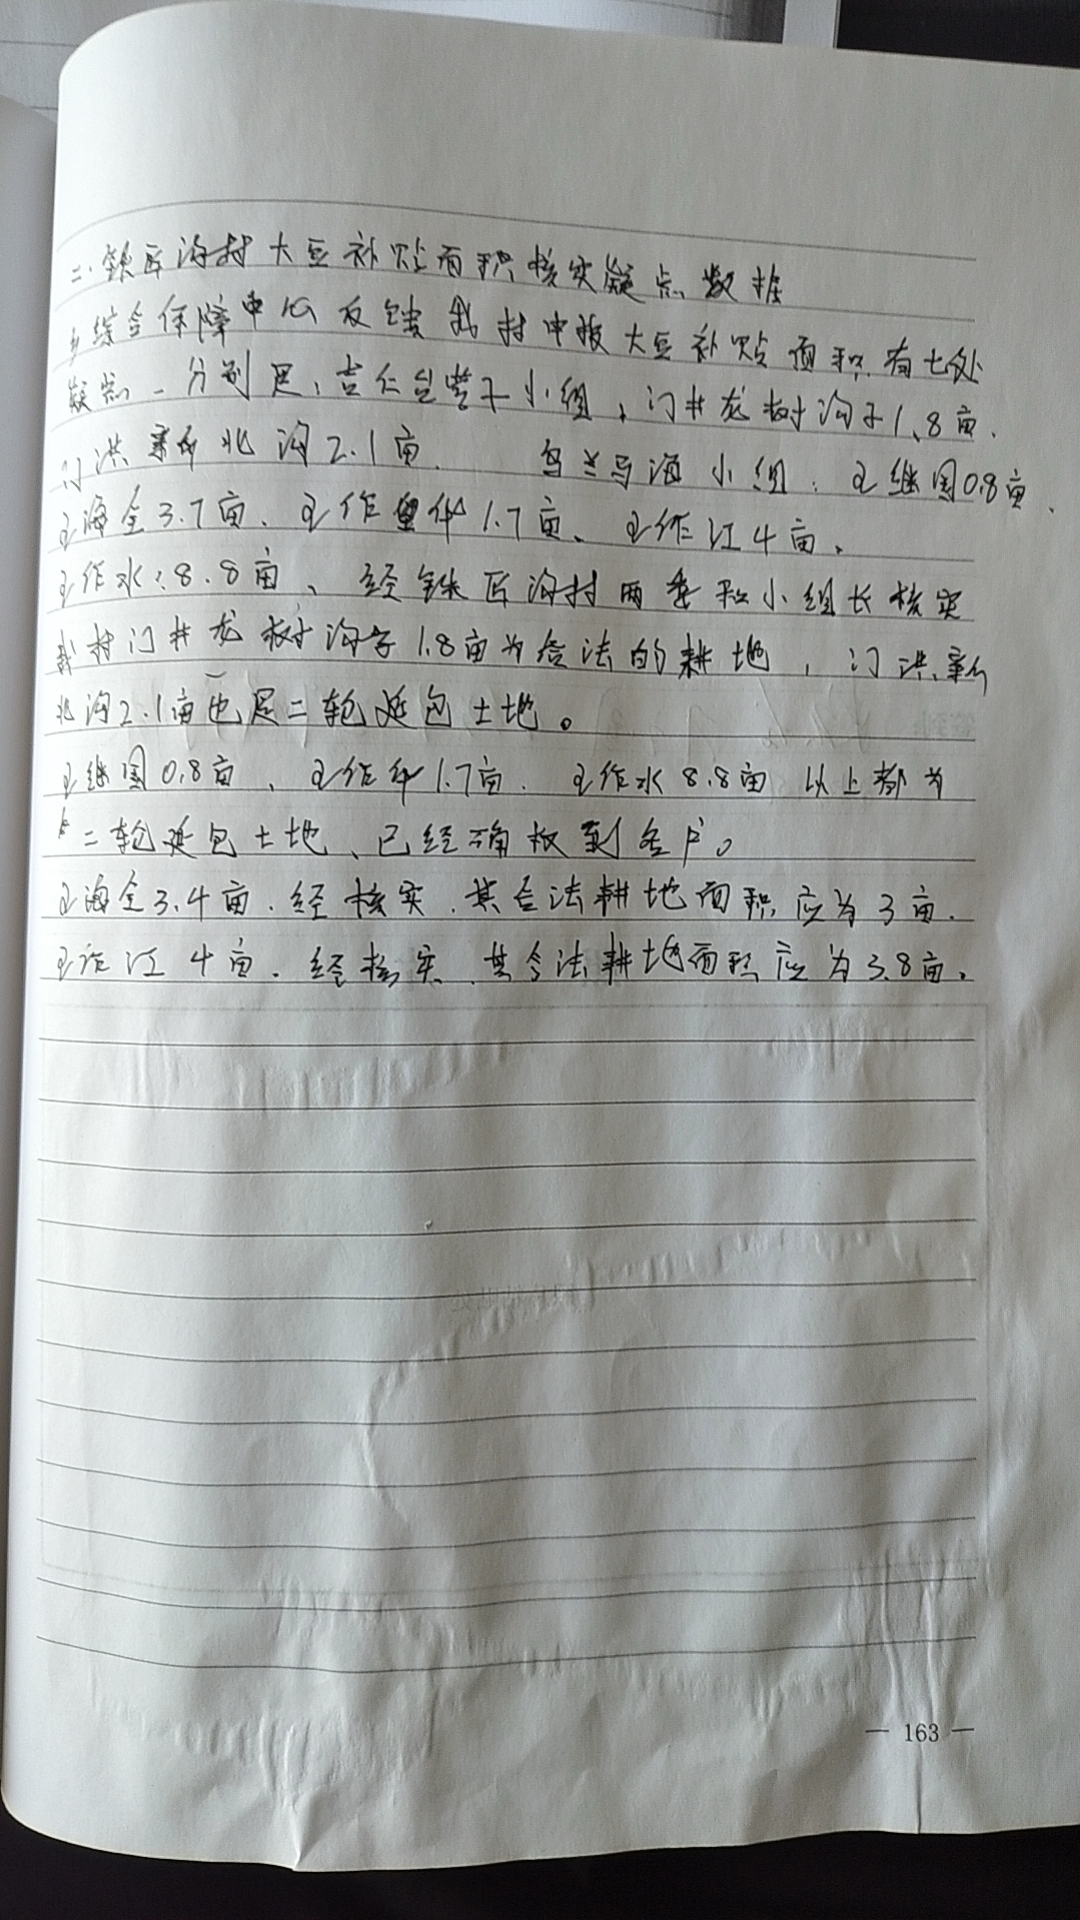 二.铁匠沟村大豆补贴面积核实疑点数据
乡综合保障中心反馈我村申报大豆补贴面积有七处
疑点.分别是,吉仁台营子小组,门井龙树沟子1.8亩.
门洪新北沟2.1亩. 乌兰马海小组:王继国0.8亩、
王海全3.7亩、王作华1.7亩、王作江4亩、
王作水:8.8亩、经铁匠沟村两委和小组长核实
我村门井龙树沟子1.8亩为合法的耕地,门洪新
北沟2.1亩也是二轮延包土地。
王继国0.8亩、王作华1.7亩.王作水8.8亩 以上都为
二轮延包土地、已经确权到各户。
王海全3.4亩.经核实.其合法耕地面积应为3亩.
王作江4亩.经核实.其合法耕地面积应为3.8亩。
— 163 —